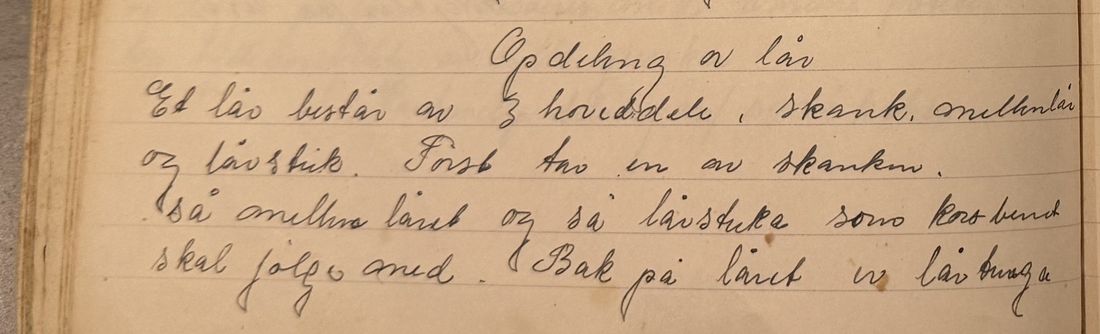 Opdeling av lår
Et lår består av 3 hoveddele, skank, mellemlår
og lårstek. Først tar en av skanken.
så mellem låret og så lårsteka som korsbenet
skal følge med. Bak på låret er lårtunga